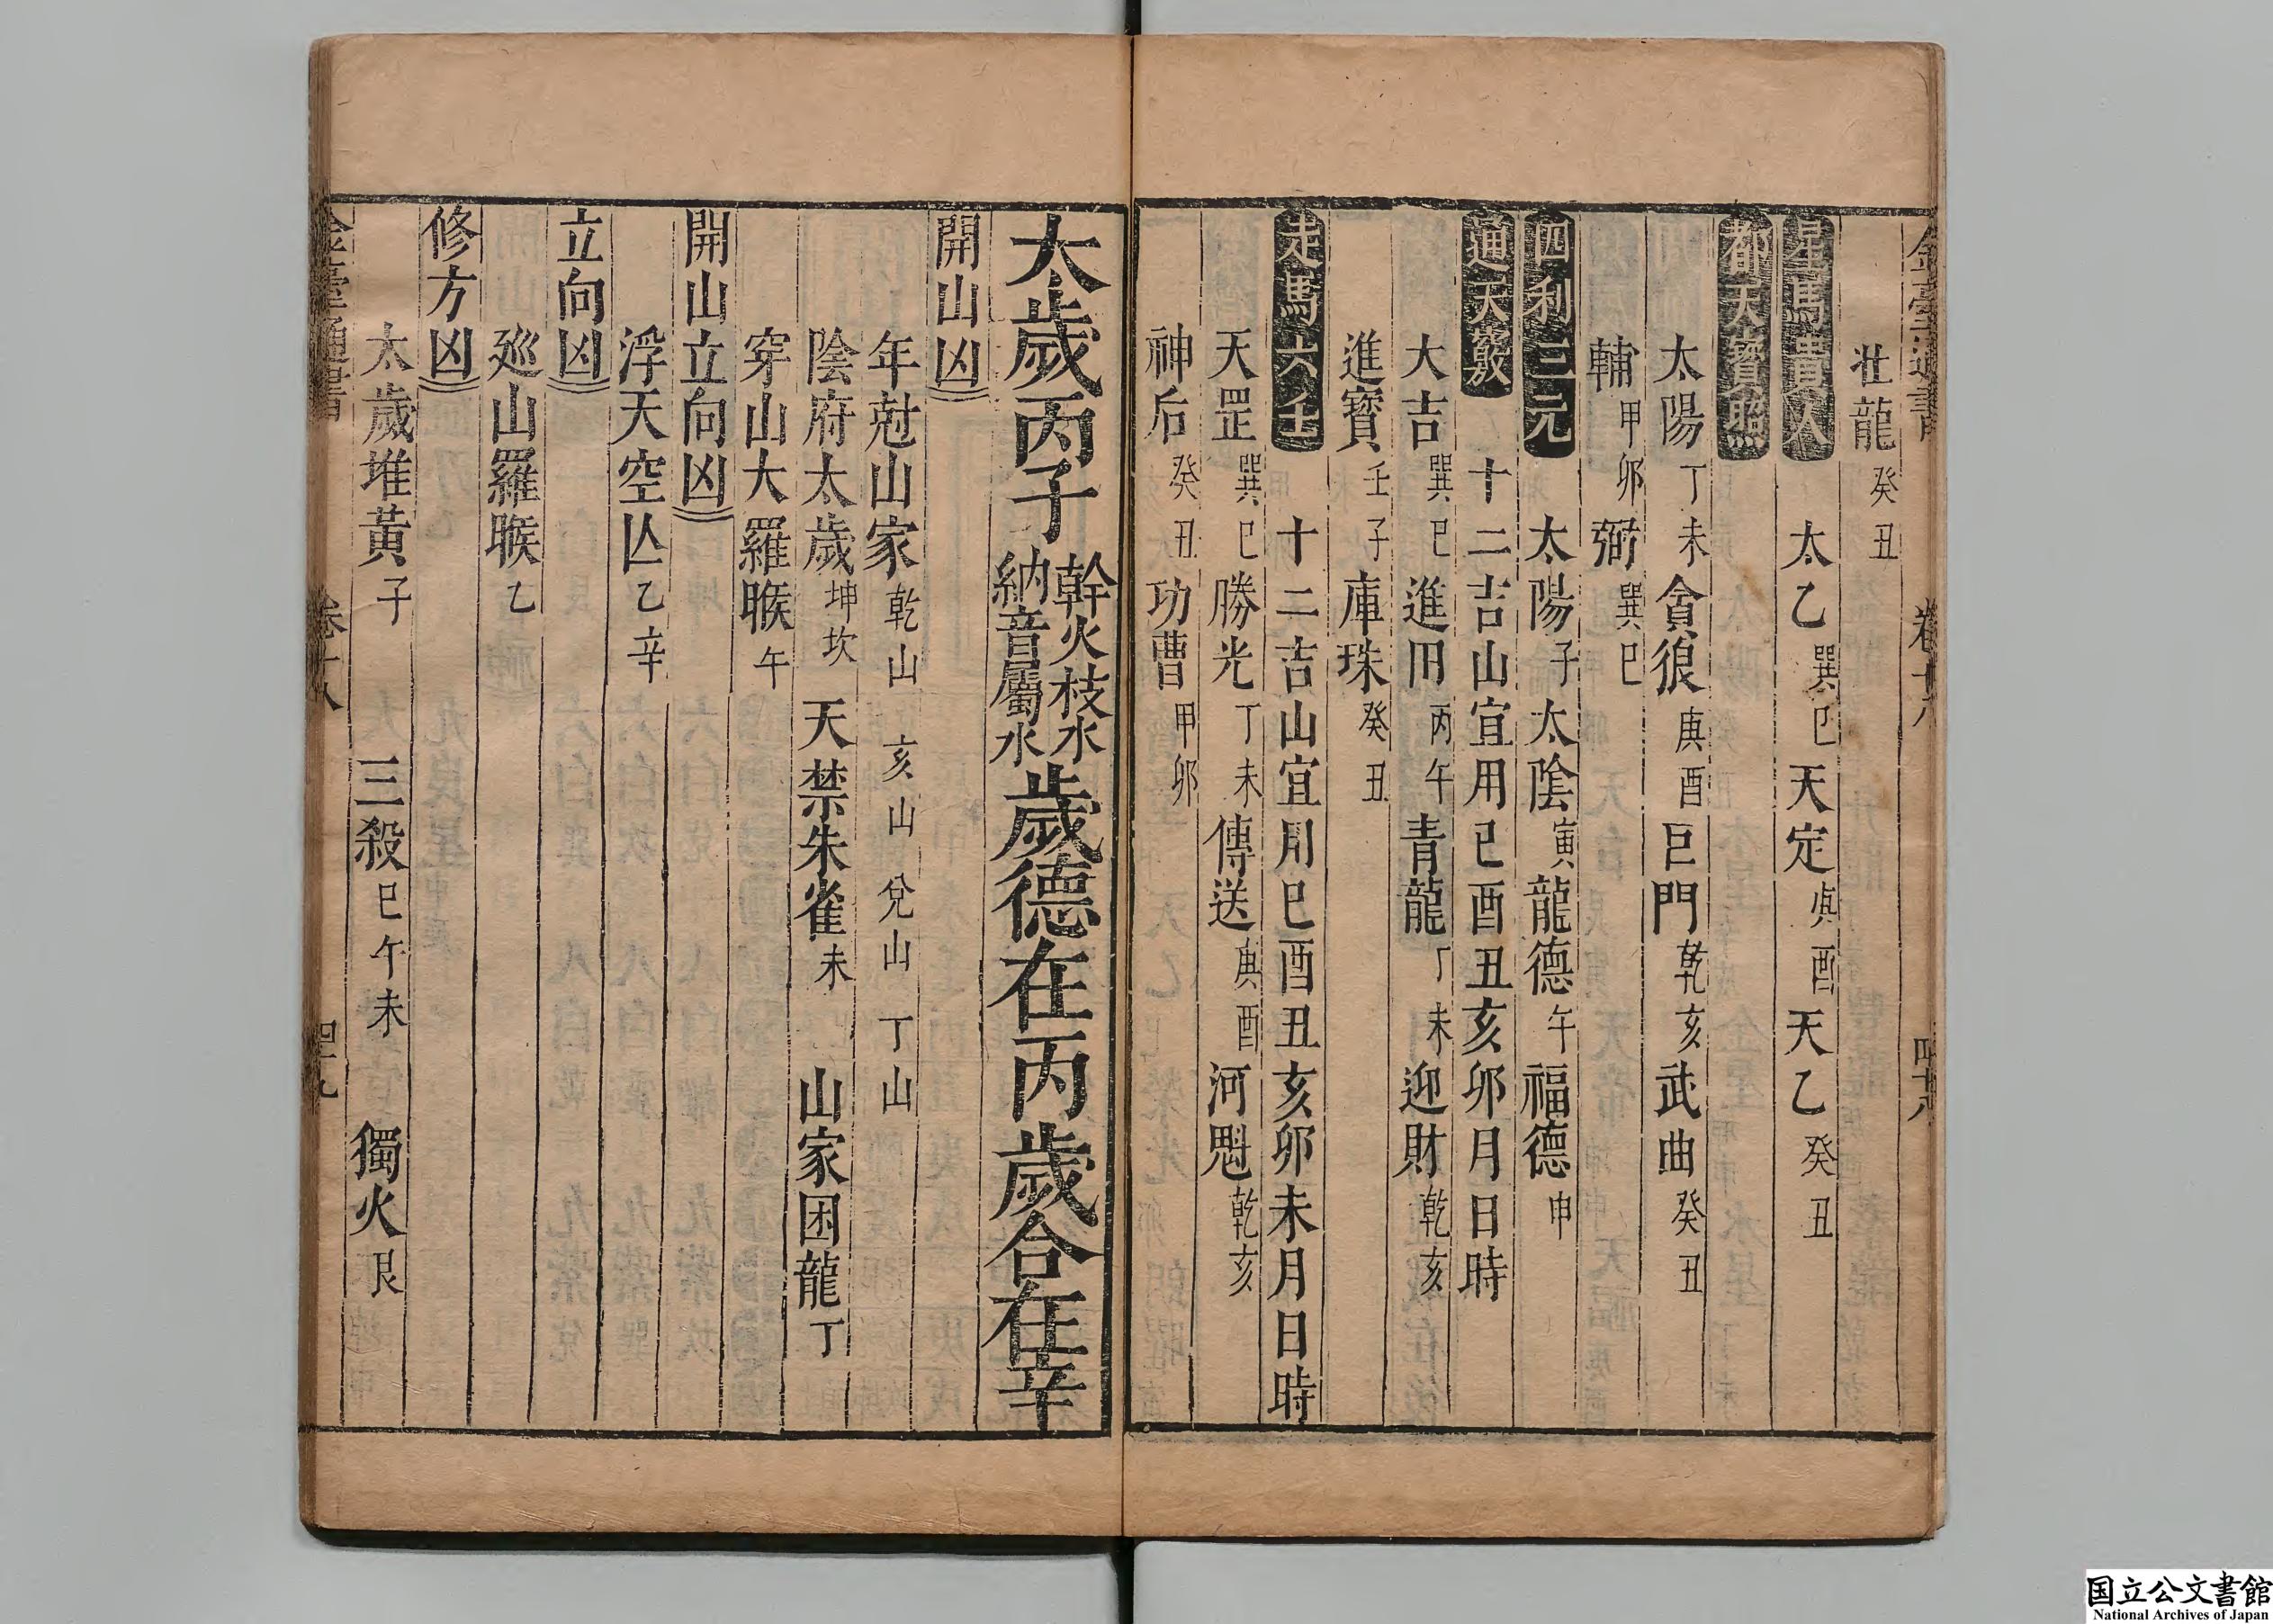 金臺通書 卷十八 四十八
壮龍 癸丑
星馬貴人 太乙 巽巳 天定 庚酉 天乙 癸丑
都天寶照
太陽 丁未 貪狼 庚酉 巨門 乾亥 武曲 癸丑
輔 甲卯 弼 巽巳
四利三元 太陽 子 太陰 寅 龍德 午 福德 申
通天竅 十二吉山宜用巳酉丑亥卯月日時
大吉 巽巳 進田 丙午 青龍 丁未 迎財 乾亥
進寶 壬子 庫珠 癸丑
走馬六壬 十二吉山宜用巳酉丑亥卯未月日時
天罡 巽巳 勝光 丁未 傳送 庚酉 河魁 乾亥
神后 癸丑 功曹 甲卯
太歲丙子 幹火枝水 納音屬水 歲德在丙歲合在辛
開山凶
年尅山家 乾山 亥山 兌山 丁山
陰府太歲 坤坎 天禁朱雀 未 山家困龍 丁
穿山大羅睺 午
開山立向凶
浮天空亾 乙辛
立向凶
廵山羅睺 乙
修方凶
太歲堆黃 子 三殺 巳午未 獨火 艮
金臺通書 卷十八 四十九
国立公文書館
National Archives of Japan